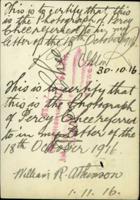 This is to certify that this
is the Photograph of Percy
Chee referred to in my
letter of the 18th October
30.10.16
This is to certify that
this is the Photograph
of Percy Chee referred
to in my letter of the
18th October 1916.
William R. Atkinson
1.11.16.